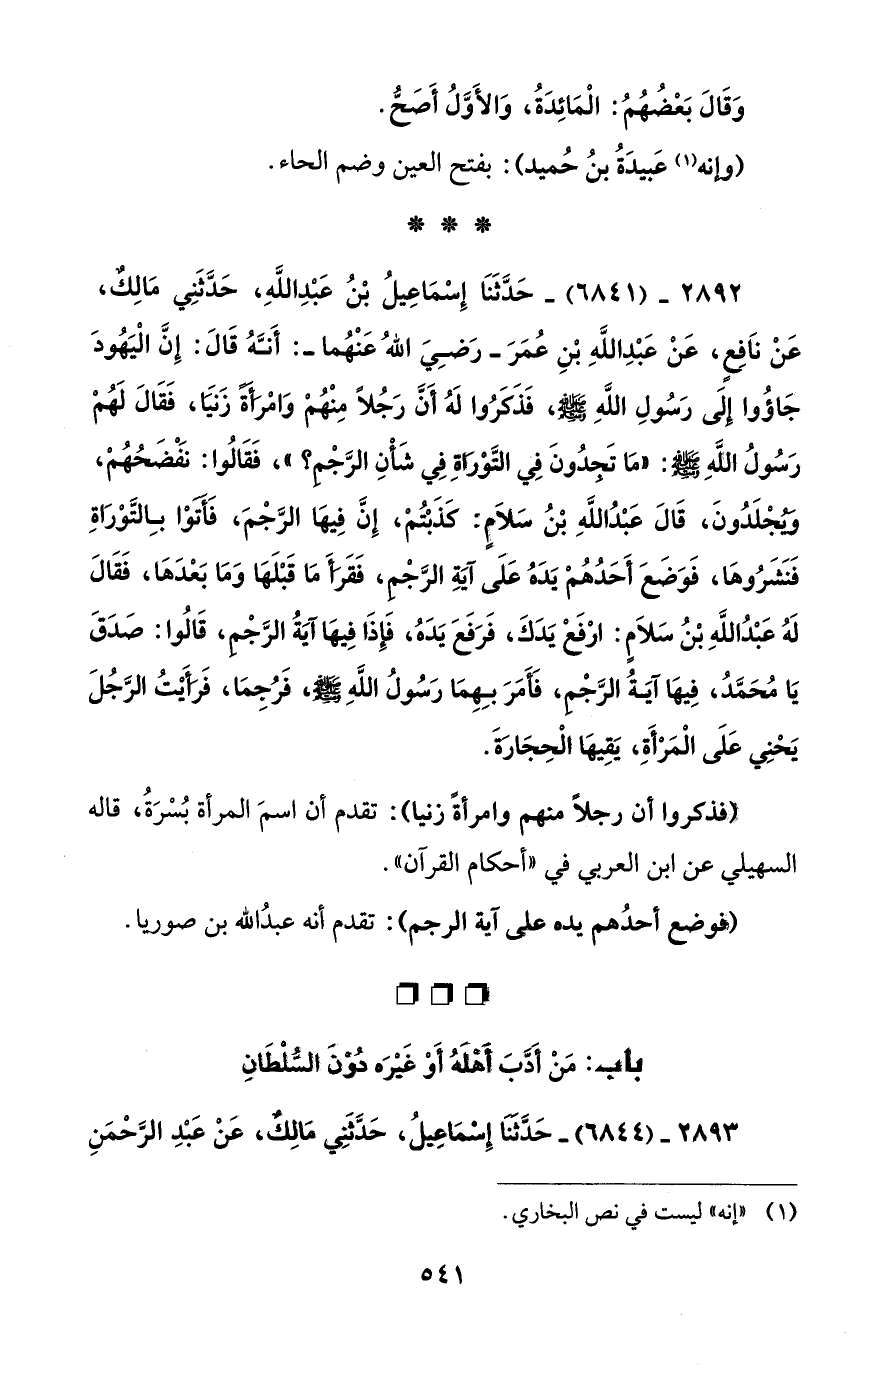 وَقَالَ بَعْضُهُمُ: الْمَائِدَةُ، وَالأَوَّلُ أَصَحُّ.
(وإنه(١) عَبِيدَةُ بنُ حُميد): بفتح العين وضم الحاء.
* * *
٢٨٩٢ ـ (٦٨٤١) ـ حَدَّثَنَا إِسْمَاعِيلُ بْنُ عَبْدِاللَّهِ، حَدَّثَنِي مَالِكٌ،
عَنْ نَافِعٍ، عَنْ عَبْدِاللَّهِ بْنِ عُمَرَ ـ رَضِيَ اللهُ عَنْهُما ـ: أَنَّهُ قَالَ: إِنَّ الْيَهُودَ
جَاؤُوا إِلَى رَسُولِ اللَّهِ ﷺ، فَذَكَرُوا لَهُ أَنَّ رَجُلاً مِنْهُمْ وَامْرَأَةً زَنَيَا، فَقَالَ لَهُمْ
رَسُولُ اللَّهِ ﷺ: «مَا تَجِدُونَ فِي التَّوْرَاةِ فِي شَأْنِ الرَّجْمِ؟»، فَقَالُوا: نَفْضَحُهُمْ،
وَيُجْلَدُونَ، قَالَ عَبْدُاللَّهِ بْنُ سَلاَمٍ: كَذَبْتُمْ، إِنَّ فِيهَا الرَّجْمَ، فَأَتَوْا بِالتَّوْرَاةِ
فَنَشَرُوهَا، فَوَضَعَ أَحَدُهُمْ يَدَهُ عَلَى آيَةِ الرَّجْمِ، فَقَرَأَ مَا قَبْلَهَا وَمَا بَعْدَهَا، فَقَالَ
لَهُ عَبْدُاللَّهِ بْنُ سَلاَمٍ: ارْفَعْ يَدَكَ، فَرَفَعَ يَدَهُ، فَإِذَا فِيهَا آيَةُ الرَّجْمِ، قَالُوا: صَدَقَ
يَا مُحَمَّدُ، فِيهَا آيَةُ الرَّجْمِ، فَأَمَرَ بِهِمَا رَسُولُ اللَّهِ ﷺ، فَرُجِمَا، فَرَأَيْتُ الرَّجُلَ
يَحْنِي عَلَى الْمَرْأَةِ، يَقِيهَا الْحِجَارَةَ.
(فذكروا أن رجلاً منهم وامرأةً زنيا): تقدم أن اسمَ المرأة بُسْرَةُ، قاله
السهيلي عن ابن العربي في «أحكام القرآن».
(فوضع أحدُهم يده على آية الرجم): تقدم أنه عبدُالله بن صوريا.
بابـ: مَنْ أَدَّبَ أَهْلَهُ أَوْ غَيْرَه دُوْنَ السُّلْطَانِ
٢٨٩٣ ـ (٦٨٤٤) ـ حَدَّثَنَا إِسْمَاعِيلُ، حَدَّثَنِي مَالِكٌ، عَنْ عَبْدِ الرَّحْمَنِ
(١) «إنه» ليست في نص البخاري.
٥٤١